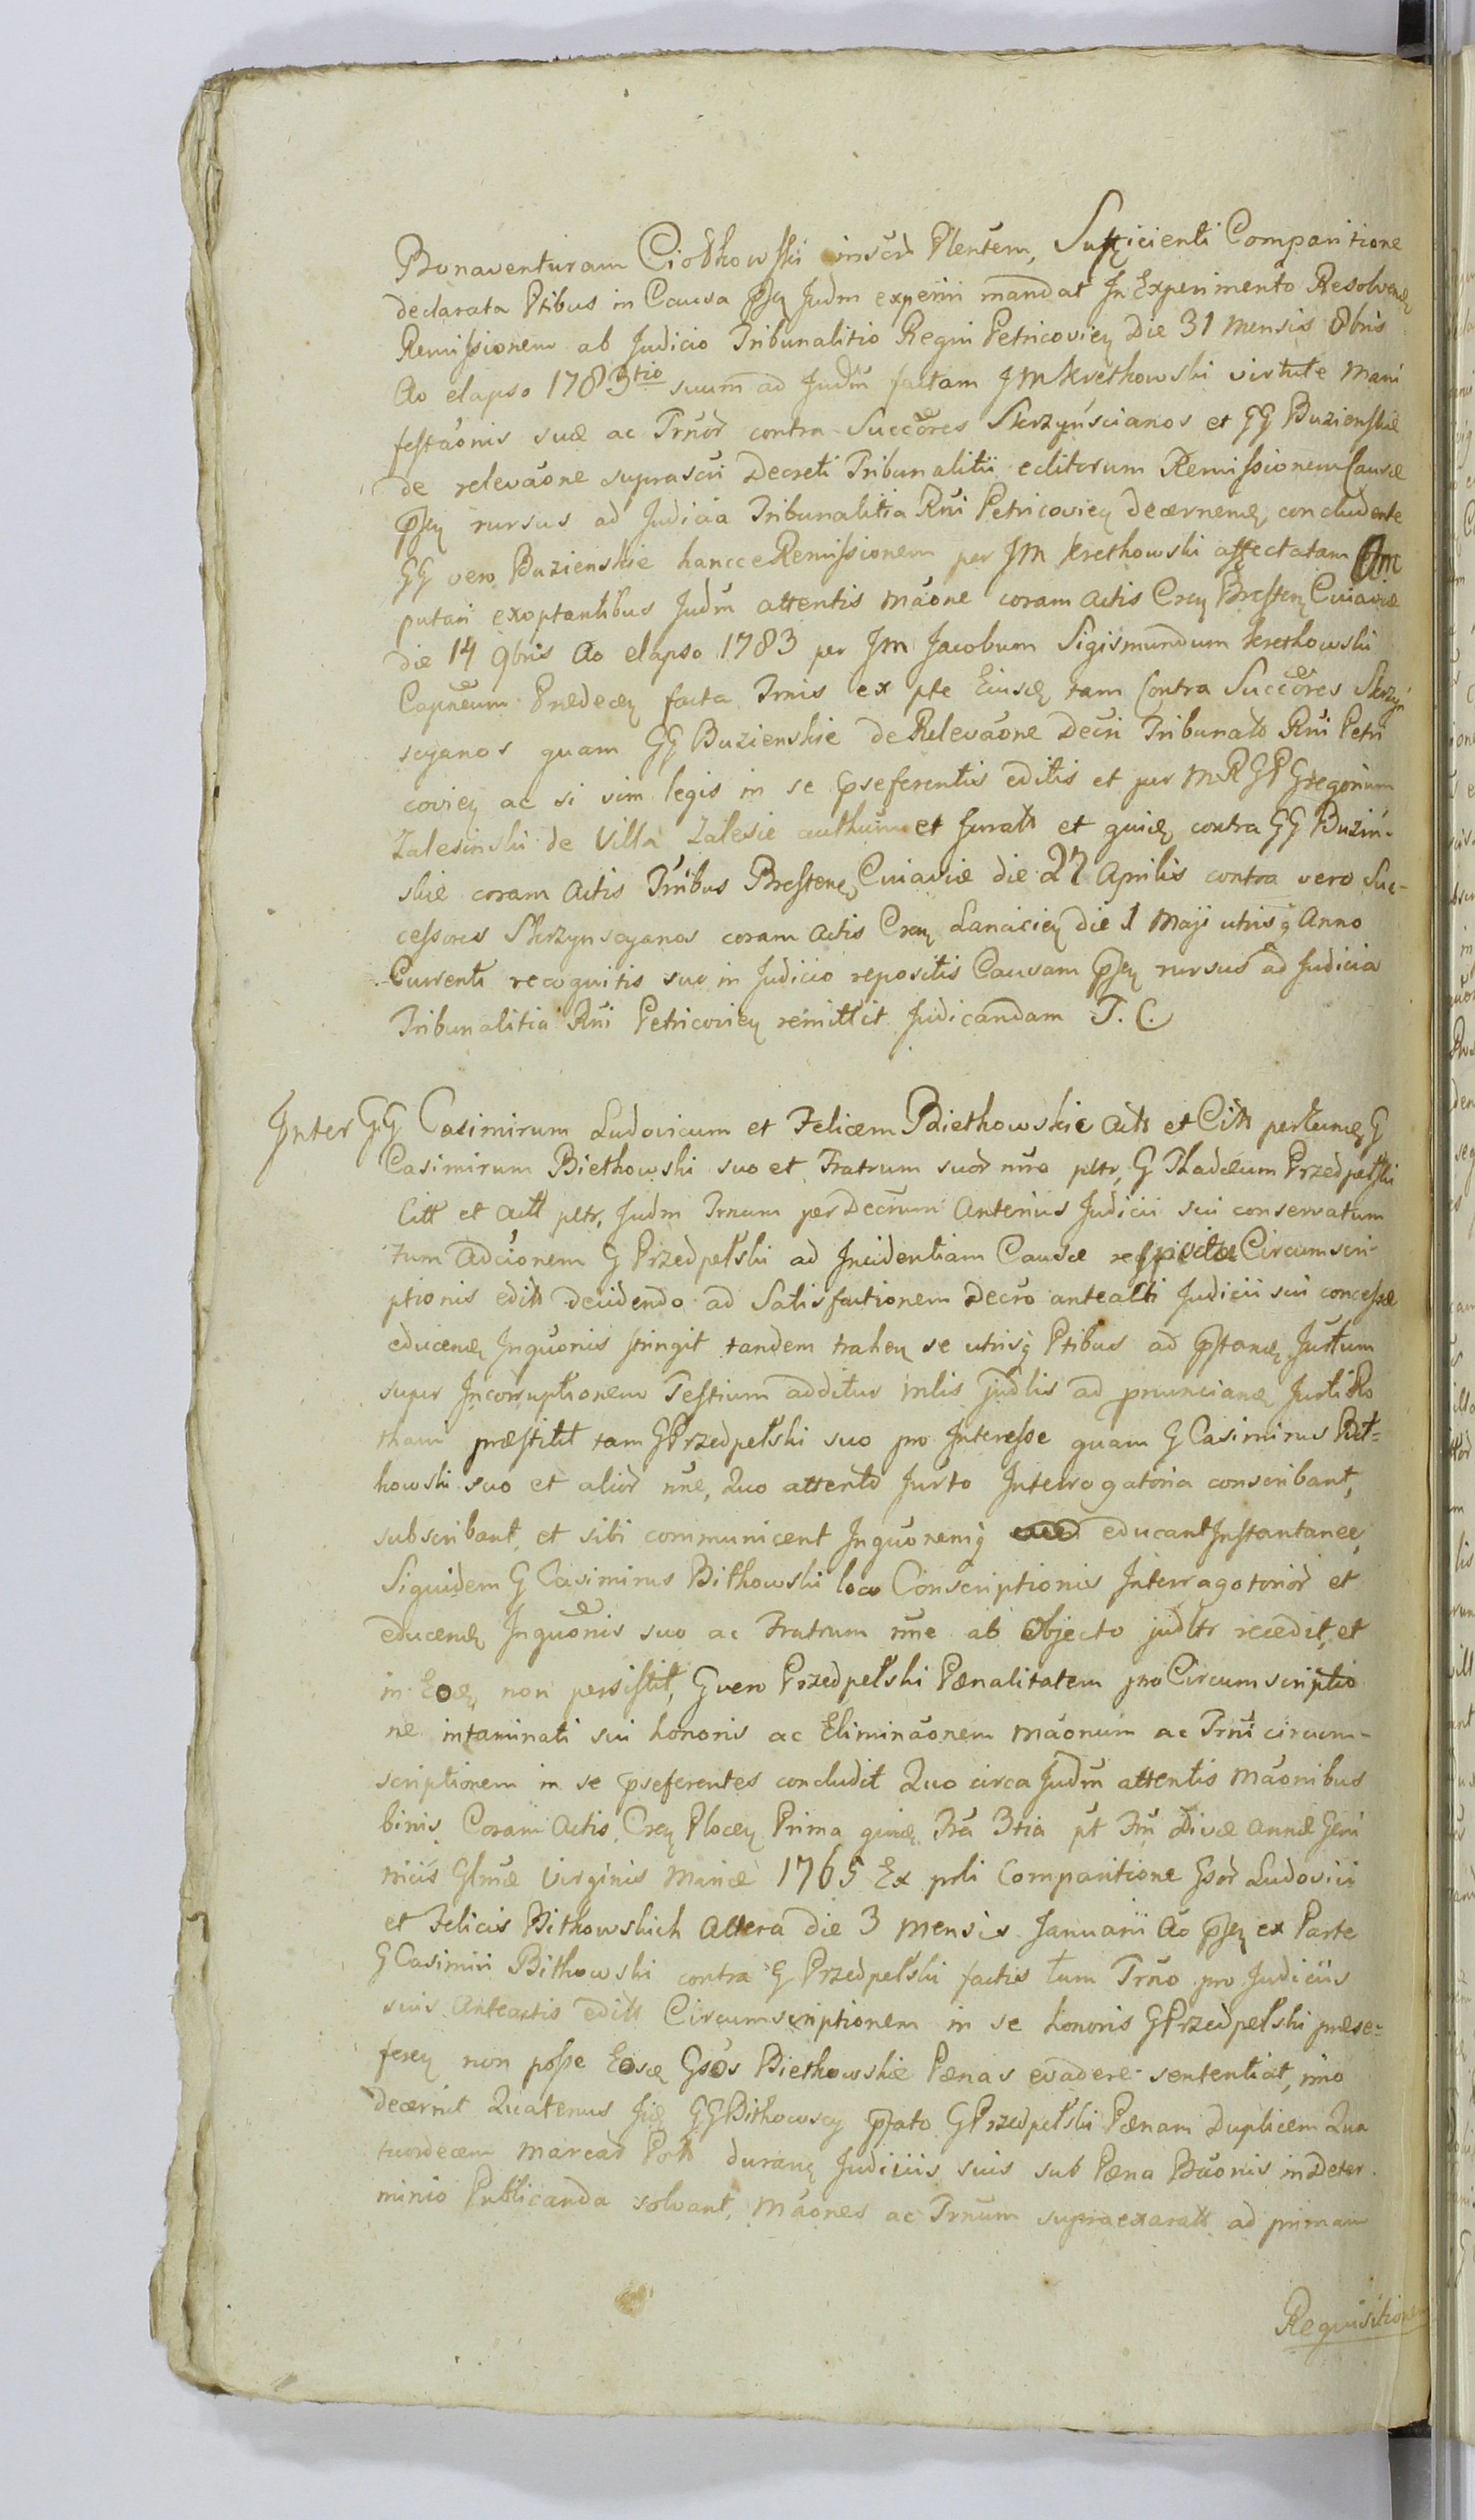 Bonaventuram Ciołkowski Plenum, Sufficienti Comparitione
declarata Ptibus in Causa Judm experiri mandat In Experimento Resolven
Remissionem ab Judicio Tribunalitio Regni Petricovien Die 31 Mensis 8bris
Ao elapso 1783tio suum ad Judm factam JM Krethowski virtute Mani
festaonis suæ ac Trnor contra Succores Skrzyńscianos et GG Buzienskie
de relevaone suprascri Decreti Tribunalitii editorum Remissionem Causæ
rursus ad Judicia Tribunalitia Rni Petricovien decernend concludente
GG vero Buzienskie hancce Remissionem per JM Krethowski affectatam Am
putari exoptantibus Judm attentis Maone coram Actis Cren Bresten Cuiaviæ
die 14 9bris Ao elapso 1783 per JM Jacobum Sigismundum Krethowski
Capneum facta Trnis ex pte Eiusd tam Contra Succores Skrzyn
scyanos quam GG Buzienskie de Relevaone Decri Tribunalo Rni Petri
covien ac si vim legis in se pseferentis editis et per MRGP Gregorium
Zalesinski de Villa Zalesie authum et Jurato et quid contra GG Buzin-
skie coram Actis Trribus Brestens Cuiaviæ die 27 Aprilis contra vero Suc-
cessores Skrzynscyanos coram Actis Cren Lanicien die 1 Maji utrisq Anno
Currenti recognitis suo in Judicio repositis Causam rursus ad Judicia
Tribunalitia Rni Petricovien remittit Judicandam T. C.
Inter GG Casimirum Ludovicum et Felicem Biethowskie Acts et Citts G
Casimirum Biethowski suo et Fratrum suor nno pltr, G Thadæum Przedpełski
Citt et Actt pltr, Judm Trnum per Decrum Anterius Judicii sui conservatum
tum Adcionem G Przedpełski ad Incidentiam Causæ Circumscri-
ptionis editt decidendo ad Satisfactionem Decro anteacti Judicii sui concessæ
educend Inquonis stringit tandem trahen se utrisq Ptibus ad pstand Jurtum
super Incorruptionem Testium additur mlis judlis ad pnunciand Jurti Ro
tham præstitit tam G Przedpełski suo pro Interesse quam G Casimirus Bit-
howski suo et alior nne, Quo attento Jurto Interrogatoria conscribant,
subscribant, et sibi communicent Inquonemq educant Instantanee,
Siquidem G Casimirus Bithowski loco Conscriptionis Interragotorior et
educend Inquonis suo ac Fratrum nne ab Objecto judltr recedit, et
in Eod, non persistit, G vero Przedpełski Pænalitatem pro Circumscriptio
ne intaminati sui honoris ac Eliminaonem Maonum ac Trni circum-
scriptionem in se pseferentes concludit Quo circa Judm attentis Maonibus
binis Coram Actis Cren Plocen Prima quid Fra 3tia pt Fm Divæ Annæ Geni
tricis Glmæ Virginis Mariæ 1765 Ex prli Comparitione Gsor Ludovici
et Felicis Bithowskich Altera die 3 Mensis Januarii Ao ex Parte
G Casimiri Bithowski contra G Przedpełski factis tum Trno pro Judiciis
suis Anteactis editt Circumscriptionem in se honoris G Przedpełski præse-
feren non posse Eosd Gsos Biethowskie Pænas evadere sententiat, imo
decernit Quatenus Jid GG Bithowscy pfato G Przedpełski Pænam Duplicem Qua
tuordecem Marcar Polo duran Judiciis suis sub Pæna Baonis in Deter
minio Publicanda solvant, Maones ac Trnum supraexaratt ad primam
Requisitionem